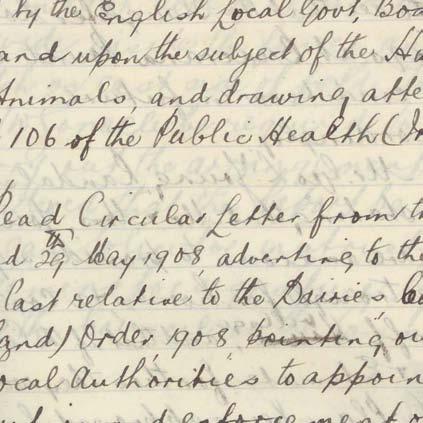 by the English Local Govt, Boa
and upon the subject of the Hu
Animals, and drawing atte
106 of the Public Health (Ir
Read Circular Letter from th
d 29th May 1908, adverting to the
last relative to the Dairies, Co
land) Order, 1908, pointing ou
ocal Authorities to appoin
and enforcement o